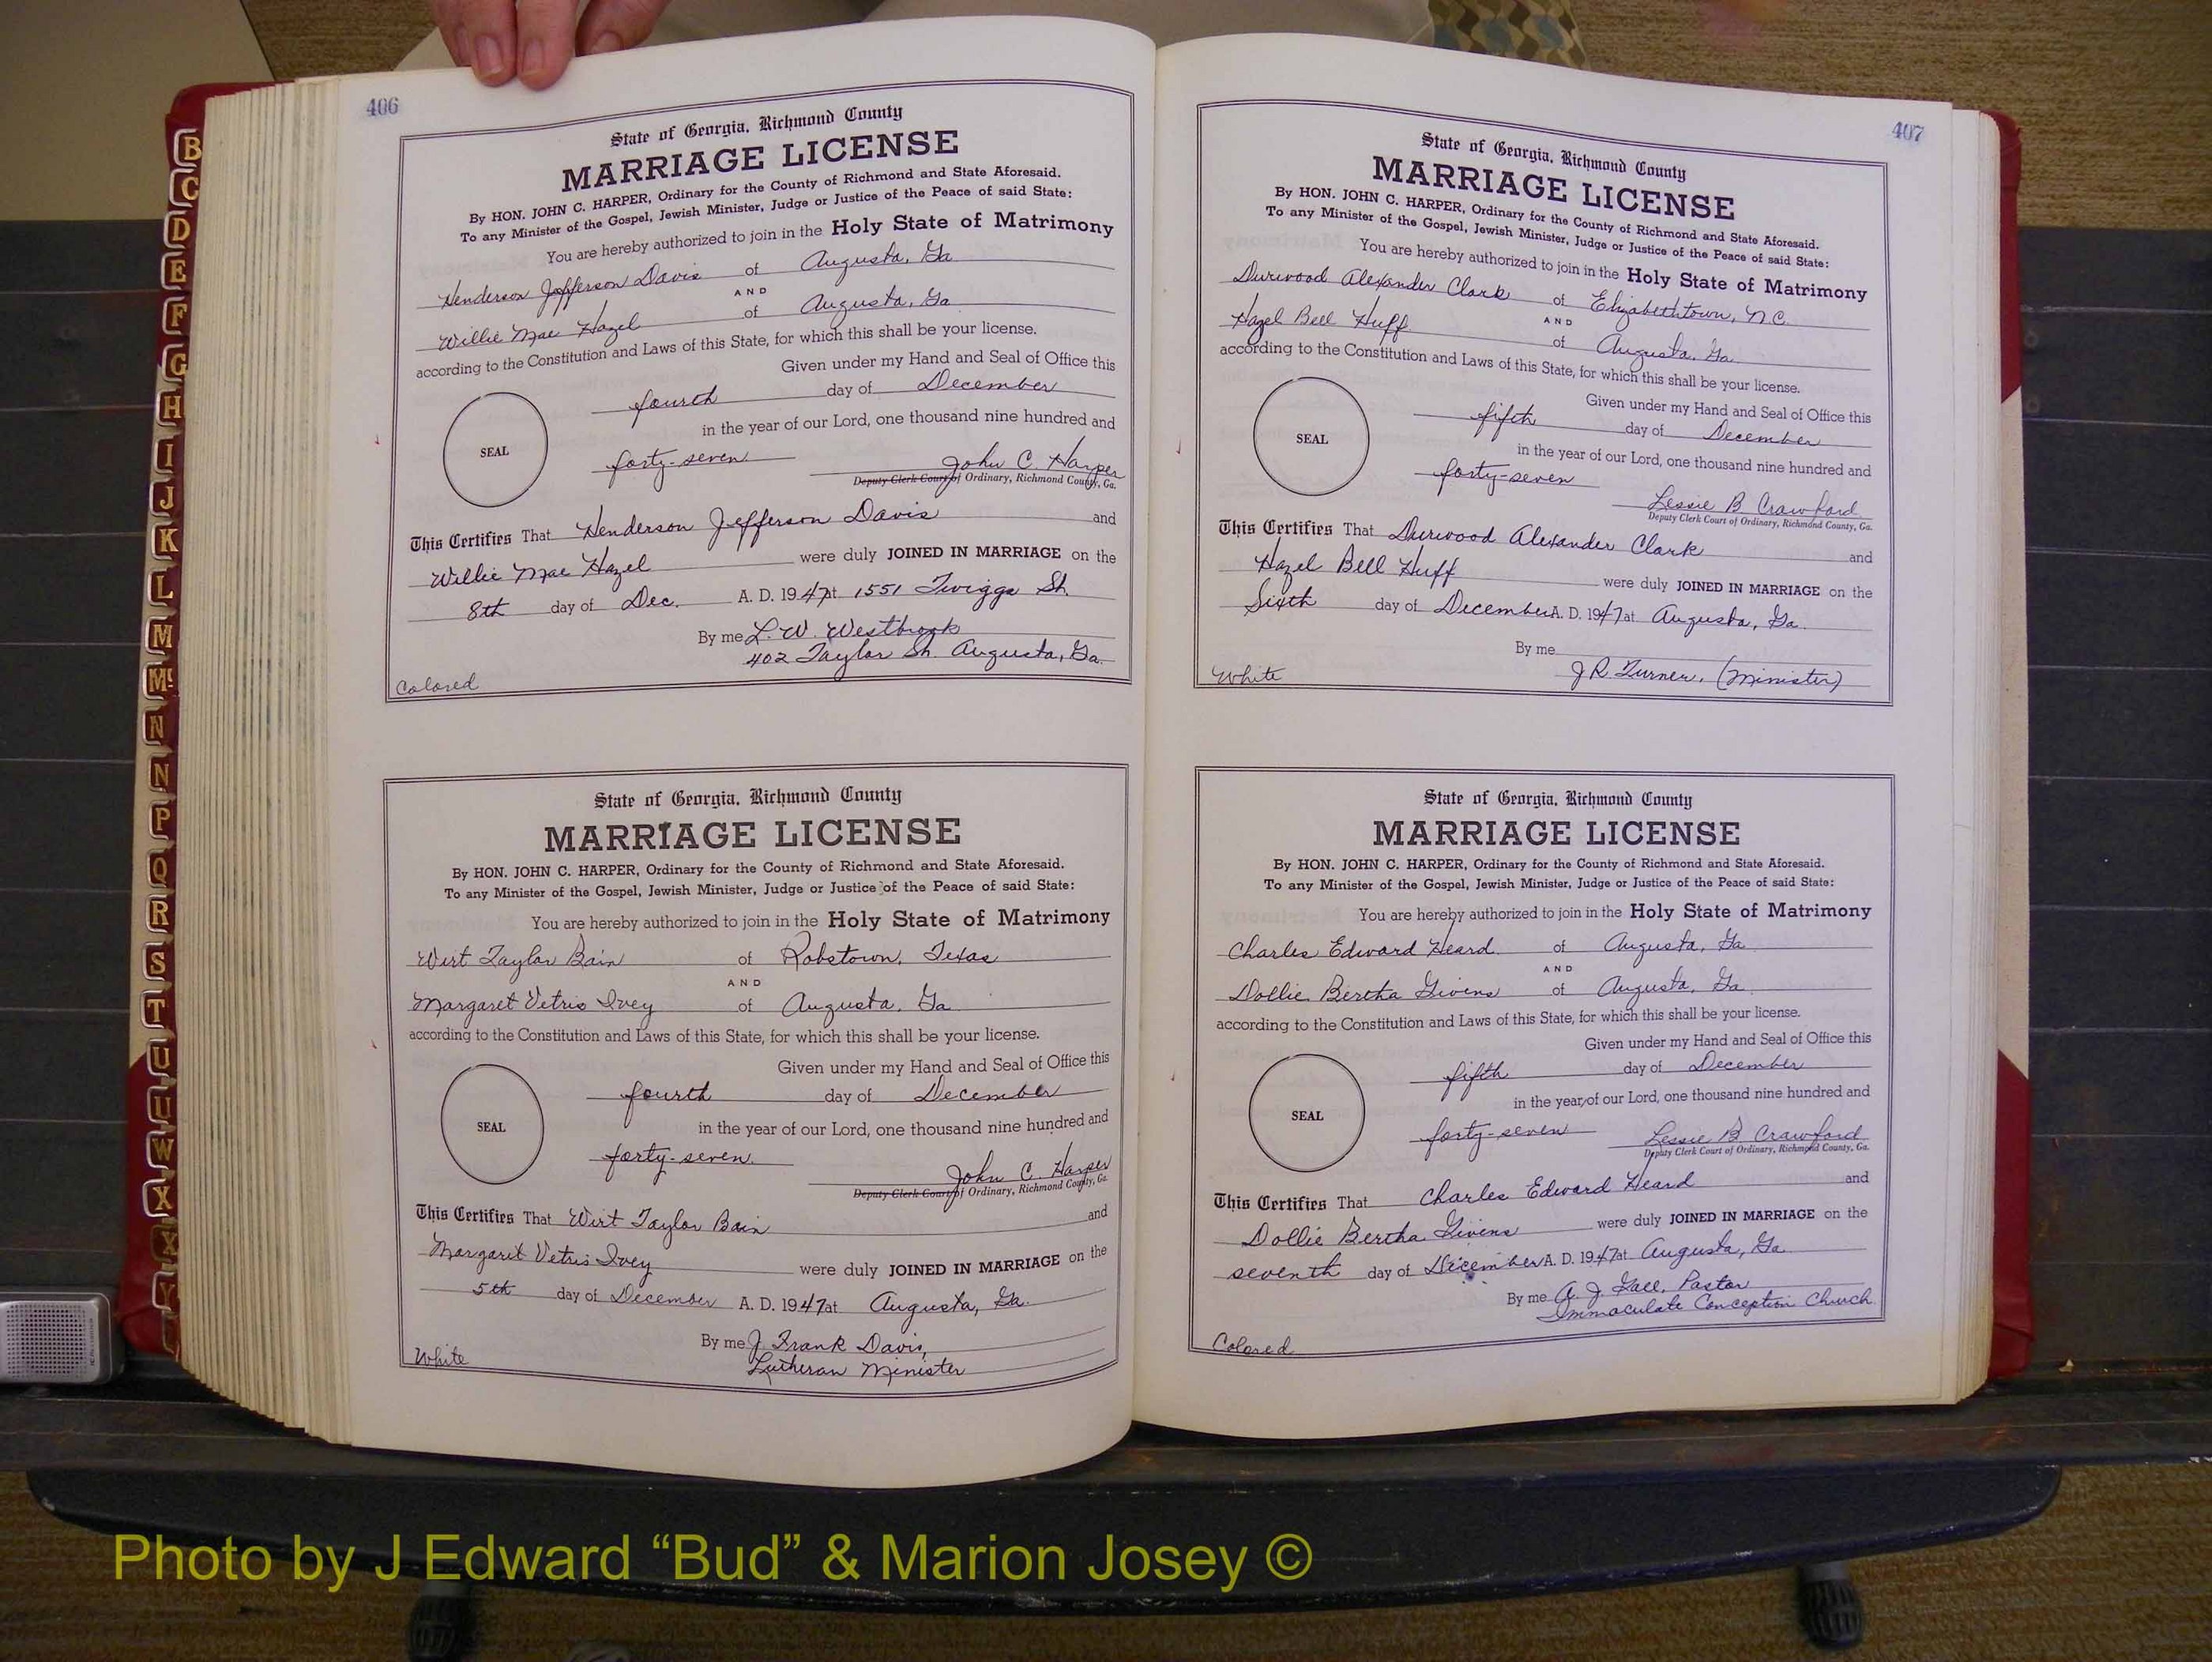 406
State of Georgia, Richmond County
MARRIAGE LICENSE
By HON. JOHN C. HARPER, Ordinary for the County of Richmond and State Aforesaid.
To any Minister of the Gospel, Jewish Minister, Judge or Justice of the Peace of said State:
You are hereby authorized to join in the Holy State of Matrimony
Henderson Jefferson Davis of Augusta, Ga
AND
Willie Mae Hazel of Augusta, Ga
according to the Constitution and Laws of this State, for which this shall be your license.
Given under my Hand and Seal of Office this
fourth day of December
in the year of our Lord, one thousand nine hundred and
SEAL
forty-seven John C. Harper
Deputy Clerk Court of Ordinary, Richmond County, Ga.
This Certifies That Henderson Jefferson Davis and
Willie Mae Hazel were duly JOINED IN MARRIAGE on the
8th day of Dec. A. D. 1947 at 1551 Twiggs St.
By me L. W. Westbrook
402 Taylor St. Augusta, Ga.
Colored
State of Georgia, Richmond County
MARRIAGE LICENSE
By HON. JOHN C. HARPER, Ordinary for the County of Richmond and State Aforesaid.
To any Minister of the Gospel, Jewish Minister, Judge or Justice of the Peace of said State:
You are hereby authorized to join in the Holy State of Matrimony
Wirt Taylor Bain of Robstown, Texas
AND
Margaret Vetris Ivey of Augusta, Ga
according to the Constitution and Laws of this State, for which this shall be your license.
Given under my Hand and Seal of Office this
fourth day of December
SEAL
in the year of our Lord, one thousand nine hundred and
forty-seven. John C. Harper
Deputy Clerk Court of Ordinary, Richmond County, Ga.
This Certifies That Wirt Taylor Bain and
Margaret Vetris Ivey were duly JOINED IN MARRIAGE on the
5th day of December A. D. 1947 at Augusta, Ga.
By me J. Frank Davis,
Lutheran Minister
White
407
State of Georgia, Richmond County
MARRIAGE LICENSE
By HON. JOHN C. HARPER, Ordinary for the County of Richmond and State Aforesaid.
To any Minister of the Gospel, Jewish Minister, Judge or Justice of the Peace of said State:
You are hereby authorized to join in the Holy State of Matrimony
Durwood Alexander Clark of Elizabethtown, N.C.
AND
Hazel Bell Huff of Augusta, Ga
according to the Constitution and Laws of this State, for which this shall be your license.
Given under my Hand and Seal of Office this
fifth day of December
SEAL
in the year of our Lord, one thousand nine hundred and
forty-seven Lessie B Crawford
Deputy Clerk Court of Ordinary, Richmond County, Ga.
This Certifies That Durwood Alexander Clark and
Hazel Bell Huff were duly JOINED IN MARRIAGE on the
Sixth day of December A. D. 1947 at Augusta, Ga.
By me
J R Turner, (Minister)
White
State of Georgia, Richmond County
MARRIAGE LICENSE
By HON. JOHN C. HARPER, Ordinary for the County of Richmond and State Aforesaid.
To any Minister of the Gospel, Jewish Minister, Judge or Justice of the Peace of said State:
You are hereby authorized to join in the Holy State of Matrimony
Charles Edward Heard of Augusta, Ga
AND
Dollie Bertha Givens of Augusta, Ga
according to the Constitution and Laws of this State, for which this shall be your license.
Given under my Hand and Seal of Office this
fifth day of December
in the year of our Lord, one thousand nine hundred and
SEAL
forty-seven Lessie B. Crawford
Deputy Clerk Court of Ordinary, Richmond County, Ga.
This Certifies That Charles Edward Heard and
Dollie Bertha Givens were duly JOINED IN MARRIAGE on the
seventh day of December A. D. 1947 at Augusta, Ga
By me A. J. Gall, Pastor
Immaculate Conception Church
Colored
B
C
D
E
F
G
H
I
J
K
L
M
Mc
N
N
P
Q
R
S
T
U
U
W
X
X
Y
Photo by J Edward “Bud” & Marion Josey ©